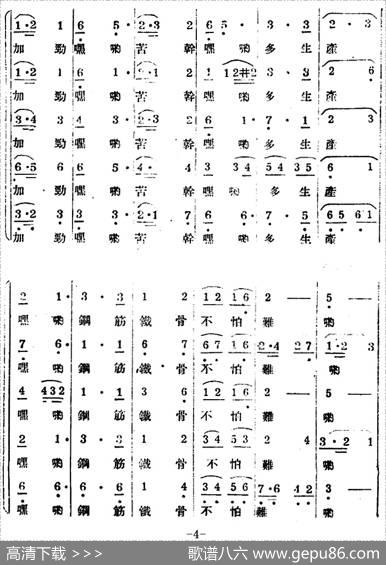 1·2 1 6 5· 2·3 2 6 5· 3· 3 2·3
加 勁 嘿 喲 苦 幹 嘿 喲 多 生 產
1·2 1 6 1· 2·1 2 1 1 2 #2 3· 3 2 6
加 勁 嘿 喲 苦 幹 嘿 喲 多 生 產
3·4 3 4 3· 2·3 2 6 1· 7· 1 2 3
加 勁 嘿 喲 苦 幹 嘿 喲 多 生 產
6·5 6 6 5· 4· 4 3 3 4 5 4 3 5 6 1
加 勁 嘿 喲 苦 幹 嘿 喲 多 生 產
3·2 3 3 3· 2·1 7 6 6· 7· 5 6 5 6 1
加 勁 嘿 喲 苦 幹 嘿 喲 多 生 產
2 1· 3· 3 1 2 1 2 1 6 2 — 5 —
嘿 喲 鋼 筋 鐵 骨 不 怕 難 喲
7 6· 1· 1 6 7 6 7 1 6 2·4 2 7 1·2 3
嘿 喲 鋼 筋 鐵 骨 不 怕 難 喲
4 4 3 2 1· 1 3 6 1 2 1 6 2 — 5 —
嘿 喲 鋼 筋 鐵 骨 不 怕 難 喲
2 1· 3· 3 1 2 3 4 5 3 2 4 3·2 1
嘿 喲 鋼 筋 鐵 骨 不 怕 難 喲
6 6· 1· 6 1 4 3 4 5 6 7·6 4 2 3 —
嘿 喲 鋼 筋 鐵 骨 不 怕 難 喲
-4-
高清下载 >>> 歌谱八六 www.gepu86.com